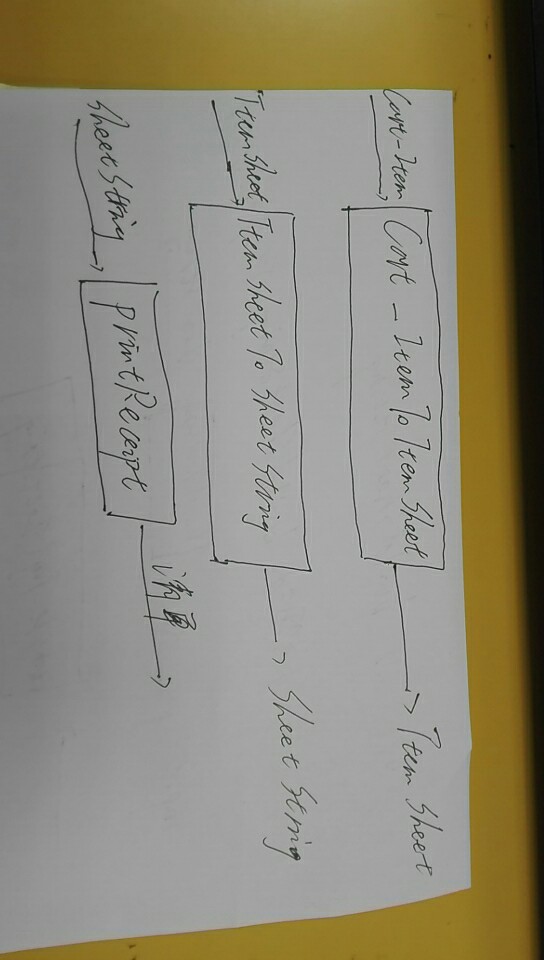 Cart-Item
Cart-ItemToItemSheet
Item Sheet
ItemSheet
ItemSheetTo SheetString
Sheet String
SheetString
printReceipt
清单